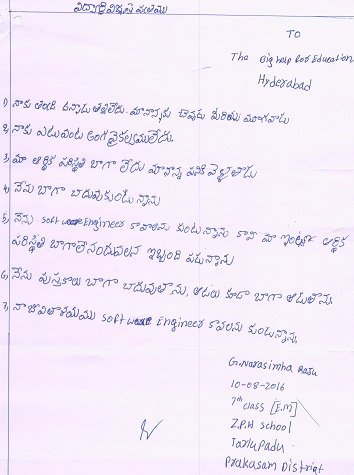 విద్యార్థి విజ్ఞప్తి పత్రము
TO
The Big help for Education
Hyderabad
1) నాకు తండ్రి ఉన్నాడు తల్లిలేదు. మానాన్నకు చెవుడు మరియు మూగవాడు
2) నాకు ఎటువంటి అంగవైకల్యములేదు.
3) మా ఆర్థిక పరిస్థితి బాగా లేదు మానాన్న పనికి వెళ్ళతాడు
4) నేను బాగా చదువుకుంటున్నాను
5) నేను Software Engineer కావాలను కుంటున్నాను కాని మా ఇంట్లో ఆర్థిక
పరిస్థితి బాగాలేనందువలన ఇబ్బంది పడుచున్నాను
6) నేను పుస్తకాలు బాగా చదువుతాను, ఆటలు కూడా బాగా ఆడుతాను.
7) నా జీవితాశయము Software Engineer కావలను కుంటున్నాను
G. Narasimha Raju
10-08-2016
7th class [E.M]
Z.P.H School
Tarlupadu
Prakasam District